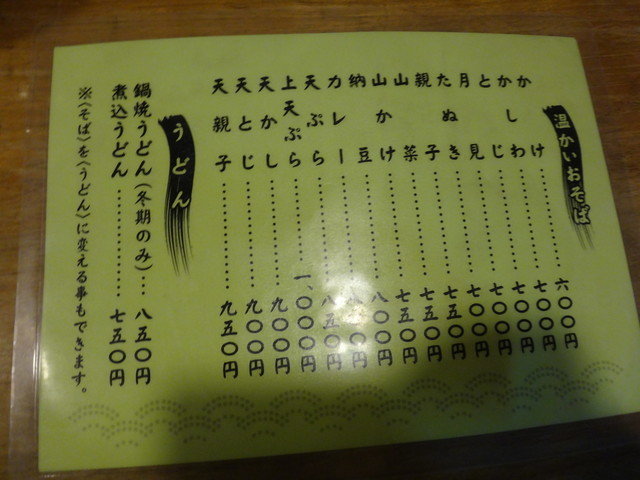 温かいおそば
かけ……………六〇〇円
かしわ……………七〇〇円
とじ……………七〇〇円
月見……………七〇〇円
たぬき……………七五〇円
親子……………七五〇円
山菜……………七五〇円
山かけ……………八〇〇円
納豆……………円
カレー……………円
天ぷら……………八五〇円
上天ぷら……………一、〇〇〇円
天かし……………九〇〇円
天とじ……………九〇〇円
天親子……………九五〇円
うどん
鍋焼うどん(冬期のみ)…八五〇円
煮込うどん……………七五〇円
※〈そば〉を〈うどん〉に変える事もできます。